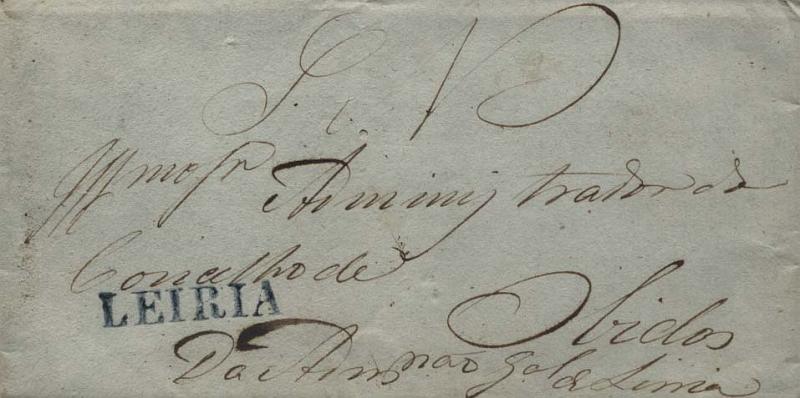 S. N.
Illmo Sr Administrador do
Concelho de
LEIRIA
Obidos
Da Admnao Gal de Leiria